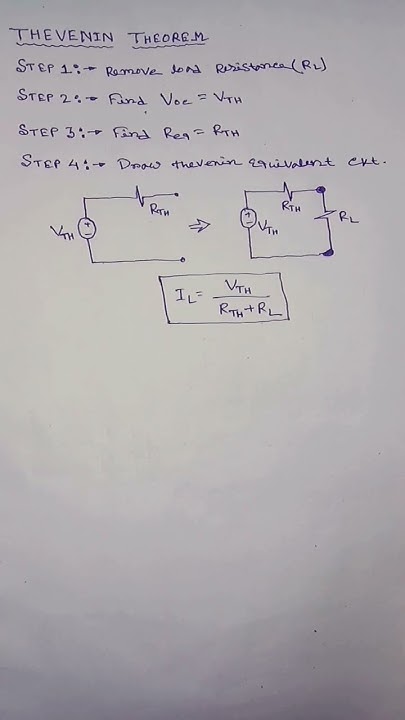 THEVENIN THEOREM
STEP 1:→ Remove load Resistance (RL)
STEP 2:→ Find Voc = VTH
STEP 3:→ Find Req = RTH
STEP 4:→ Draw thevenin Equivalent ckt.
RTH
VTH
⇒
RTH
VTH
RL
IL = VTH / RTH + RL